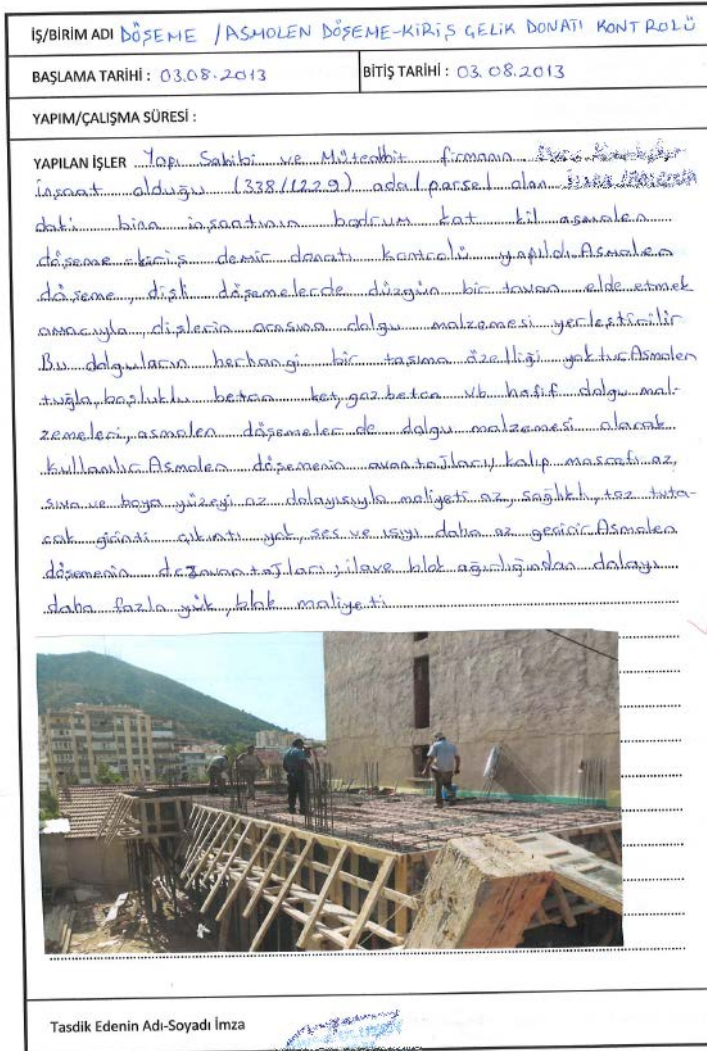 İŞ/BİRİM ADI DÖŞEME / ASMOLEN DÖŞEME-KİRİŞ ÇELİK DONATI KONTROLÜ
BAŞLAMA TARİHİ : 03.08.2013
BİTİŞ TARİHİ : 03.08.2013
YAPIM/ÇALIŞMA SÜRESİ :
YAPILAN İŞLER Yapı Sahibi ve Müteahhit firmanın
İnşaat olduğu (338/1229) ada/parsel olan
daki bina inşaatının bodrum kat kil asmolen
döşeme-kiriş demir donatı kontrolü yapıldı. Asmolen
döşeme, dişli döşemelerde düzgün bir tavan elde etmek
amacıyla, dişlerin arasına dolgu malzemesi yerleştirilir
Bu dolguların herhangi bir taşıma özelliği yoktur. Asmolen
tuğla, boşluklu beton ket, gaz beton vb hafif dolgu mal-
zemeleri, asmolen döşemeler de dolgu malzemesi olarak
kullanılır. Asmolen döşemenin avantajları; kalıp masrafı az,
sıva ve boya yüzeyi az dolayısıyla maliyeti az, sağlıklı, toz tuta-
cak girinti çıkıntı yok, ses ve ısıyı daha az geçirir. Asmolen
döşemenin dezavantajları; ilave blok ağırlığından dolayı
daha fazla yük, blok maliyeti
Tasdik Edenin Adı-Soyadı İmza